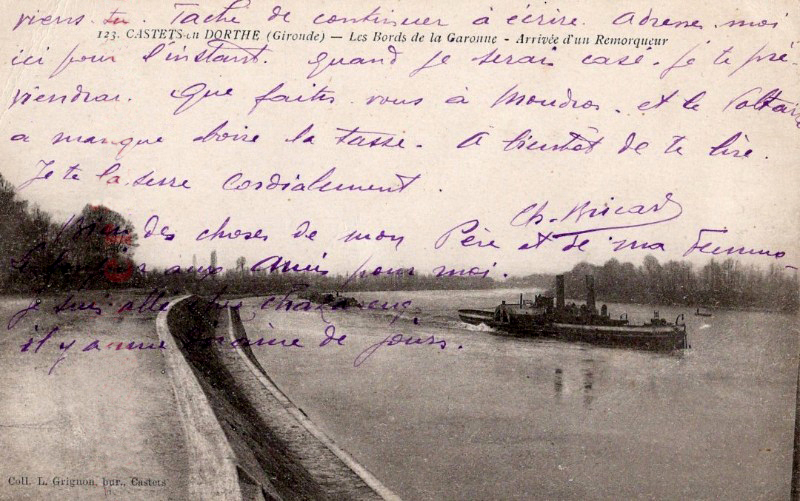 viens tu. Tache de continuer à écrire. Adresse moi
123. CASTETS-en DORTHE (Gironde) — Les Bords de la Garonne - Arrivée d'un Remorqueur
ici pour l'instant. quand je serai casé. je te pré-
viendrai. Que faites vous à Moudros. et le Voltaire
a manqué boire la tasse. A bientôt de te lire.
Je te la serre cordialement.
Ch. Bricard
Bien des choses de mon Père et de ma femme
aux amis pour moi.
je suis allé
il y a une
de jours.
Coll. L. Grignon, bur., Castets